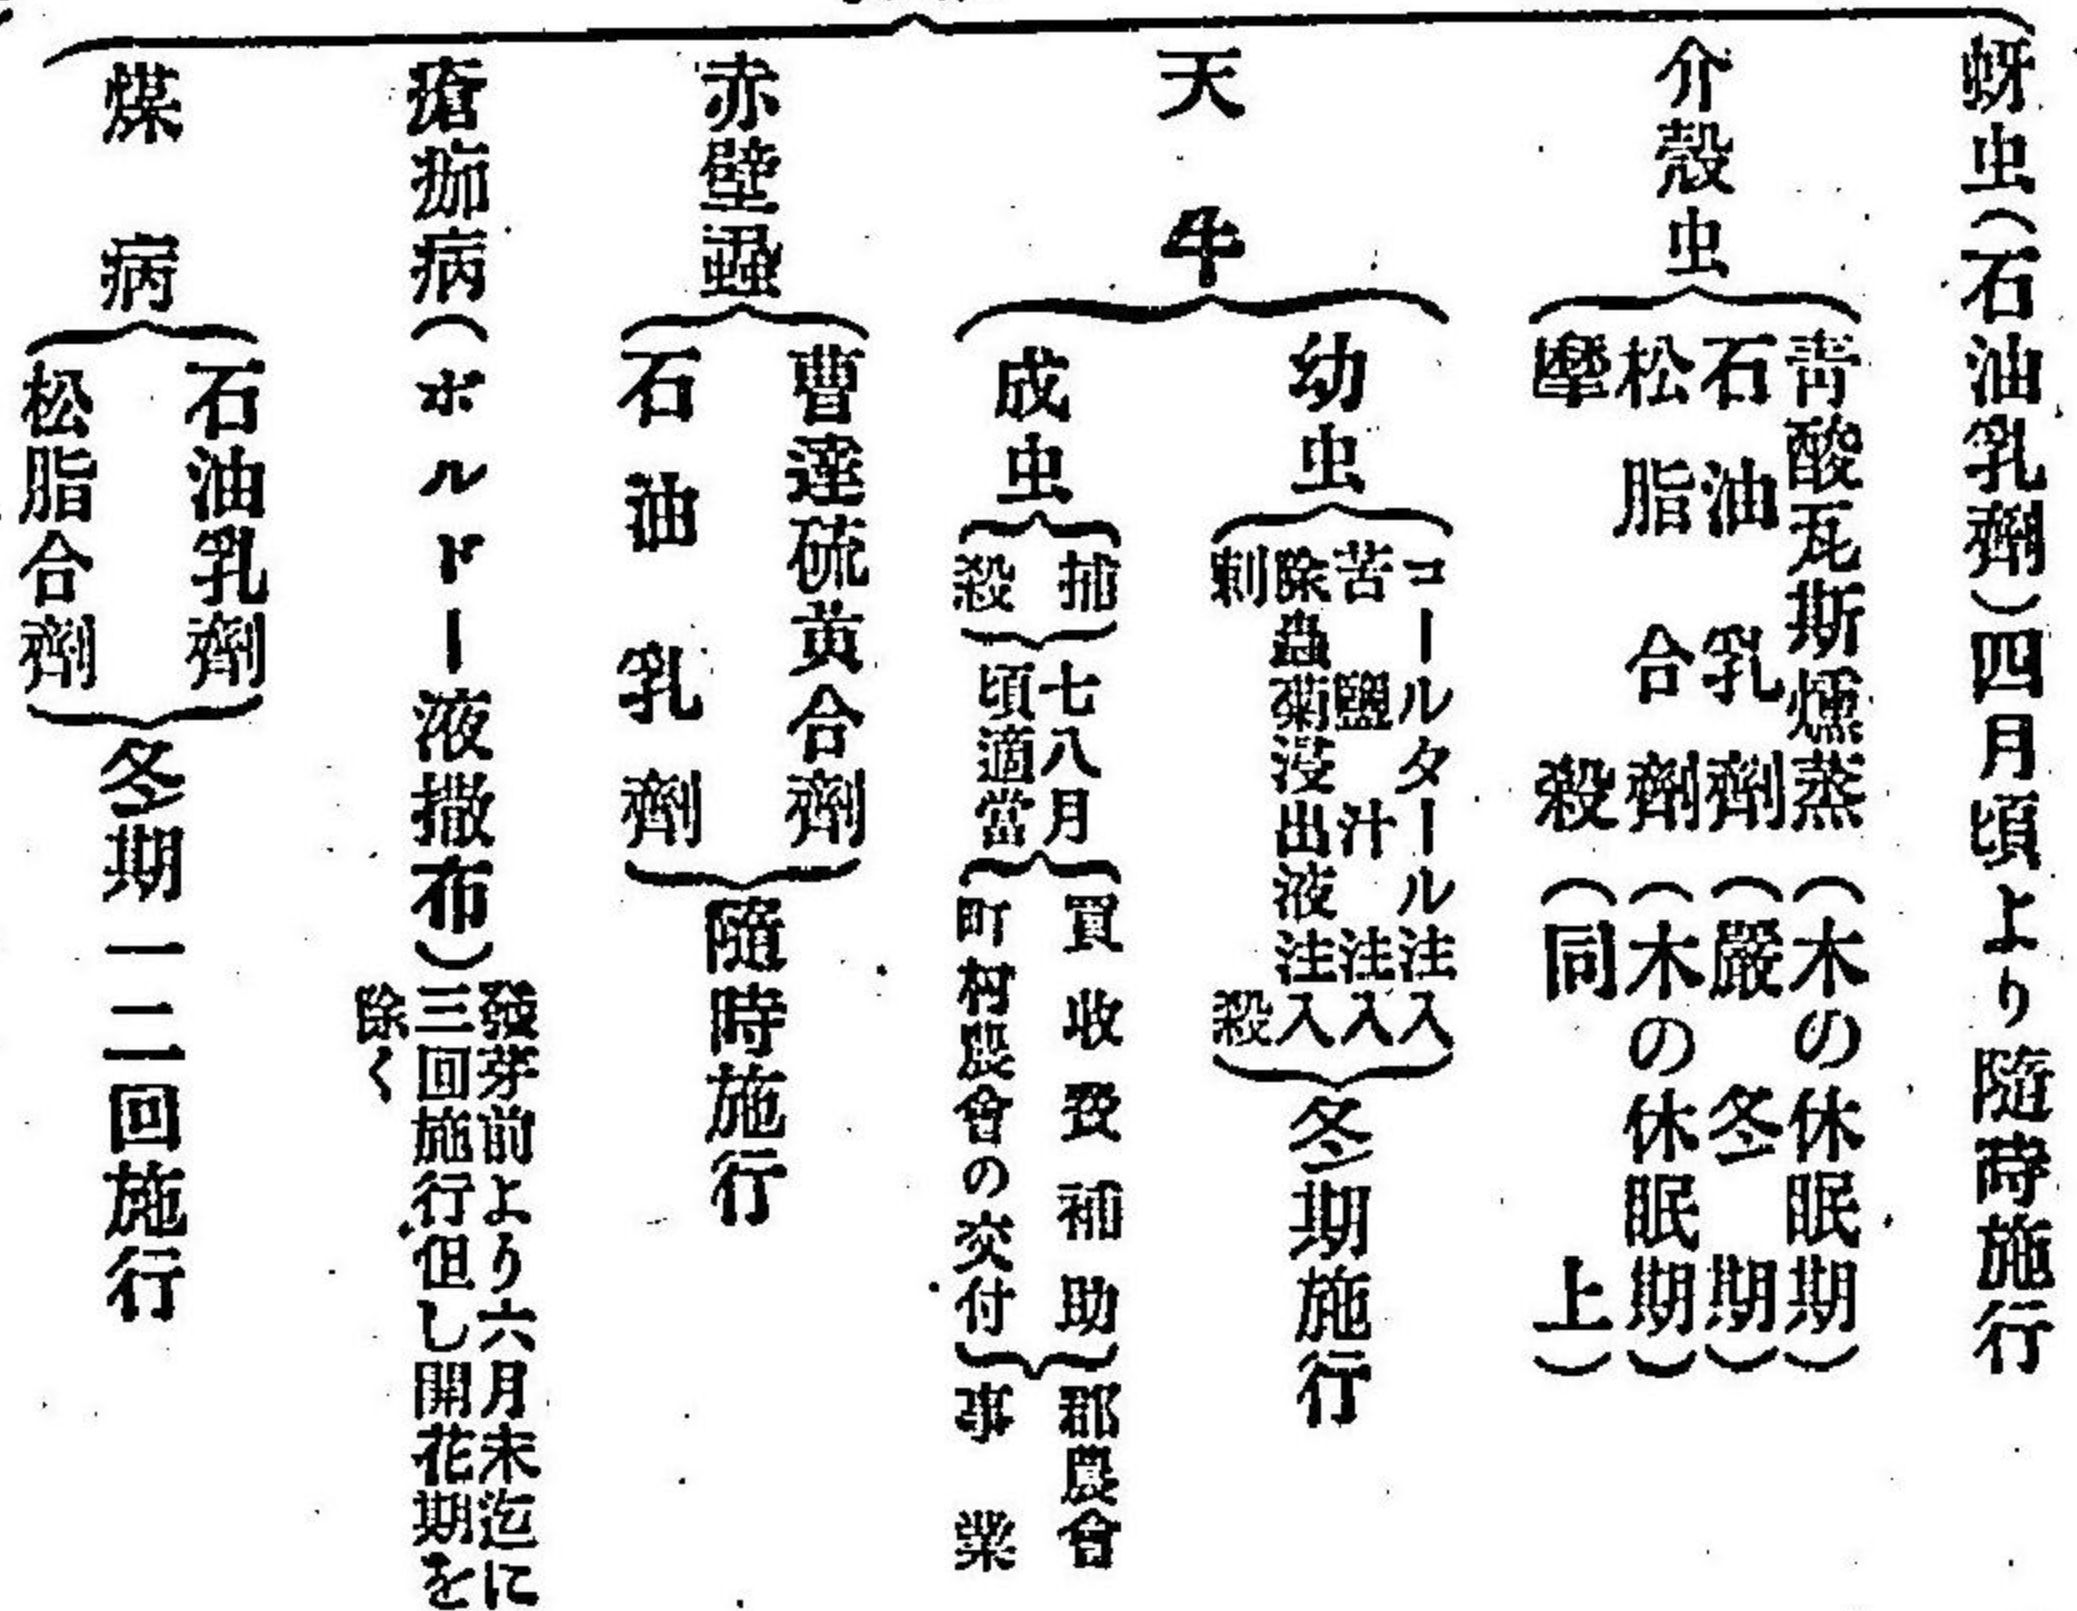 蚜虫(石油乳劑)四月頃より隨時施行
介殼虫
青酸瓦斯燻蒸(木の休眠期)
石油乳劑(嚴冬期)
松脂合劑(木の休眠期)
摩殺(同上)
天牛
幼虫
コールタール注入
苦鹽汁注入
除蟲菊浸出液注入
刺殺
冬期施行
成虫
捕殺
七八月
頃適當
買收費補助
町村農會の交付
郡農會
事業
赤壁蝨
曹達硫黄合劑
石油乳劑
隨時施行
瘡痂病(ボルドー液撒布)
發芽前より六月末迄に
三回施行但し開花期を
除く
煤病
石油乳劑
松脂合劑
冬期一二回施行